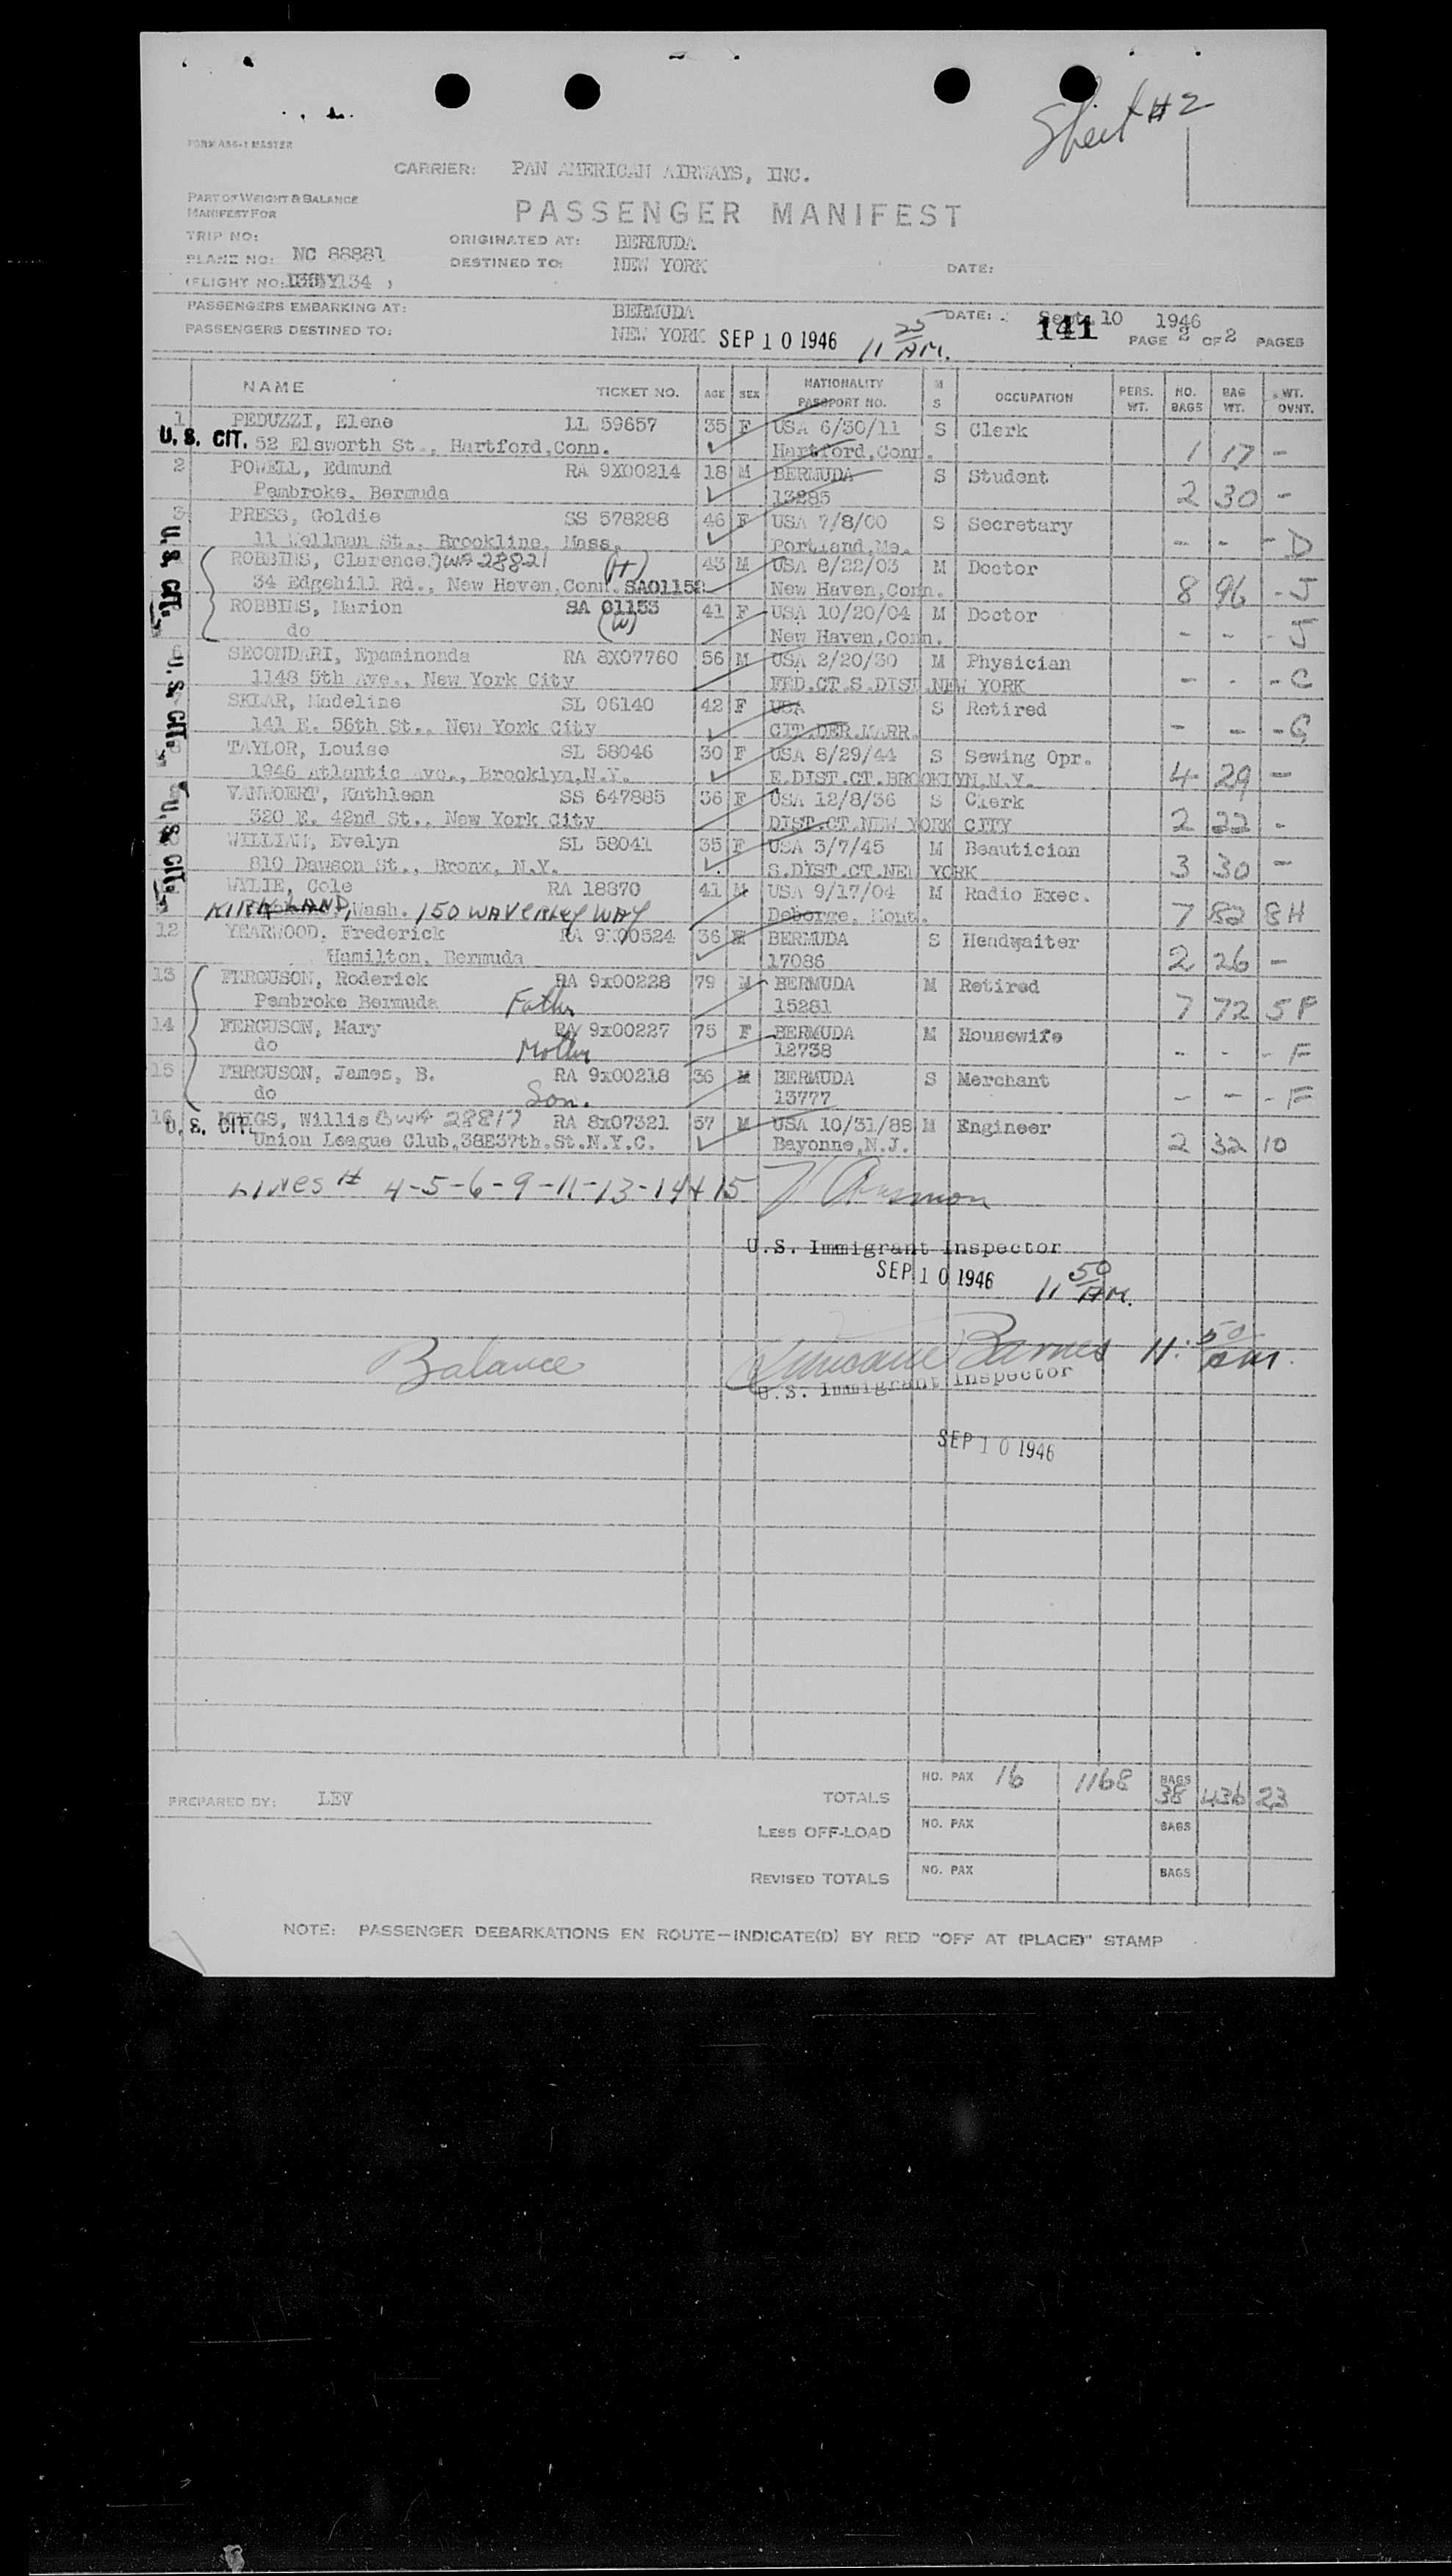 Sheet #2
FORM A86-1 MASTER
CARRIER: PAN AMERICAN AIRWAYS, INC.
PART OF WEIGHT & BALANCE
MANIFEST FOR
PASSENGER MANIFEST
TRIP NO:
ORIGINATED AT: BERMUDA
PLANE NO: NC 88881
DESTINED TO: NEW YORK
DATE:
(FLIGHT NO: 134 )
PASSENGERS EMBARKING AT: BERMUDA
DATE: Sept. 10 1946
141
PASSENGERS DESTINED TO: NEW YORK SEP 10 1946 11 25 AM.
PAGE 2 OF 2 PAGES
NAME TICKET NO. AGE SEX NATIONALITY PASSPORT NO. M S OCCUPATION PERS. WT. NO. BAGS BAG WT. WT. OVNT.
1 PEDUZZI, Elene LL 59657 35 F USA 6/30/11 S Clerk
U. S. CIT. 52 Elsworth St., Hartford, Conn. Hartford, Conn. 1 17 -
2 POWELL, Edmund RA 9X00214 18 M BERMUDA S Student
Pembroke, Bermuda 13285 2 30 -
3 PRESS, Goldie SS 578288 46 F USA 7/8/00 S Secretary
11 Wellman St., Brookline, Mass. Portland, Me. - - - D
U. S. CIT.
ROBBINS, Clarence JW# 28821 (H) 43 M USA 8/22/03 M Doctor
34 Edgehill Rd., New Haven, Conn. SA01152 New Haven, Conn. 8 96 - J
ROBBINS, Marion SA 01153 41 F USA 10/20/04 M Doctor
do (W) New Haven, Conn. - - - J
6 SECONDARI, Epaminonda RA 8X07760 56 M USA 2/20/30 M Physician
1148 5th Ave., New York City FED.CT.S.DIST.NEW YORK - - - C
U. S. CIT.
SKLAR, Madeline SL 06140 42 F USA S Retired
141 E. 56th St., New York City CIT.DER.MARR. - - - C
TAYLOR, Louise SL 58046 30 F USA 8/29/44 S Sewing Opr.
1946 Atlantic Ave., Brooklyn, N.Y. E.DIST.CT.BROOKLYN,N.Y. 4 29 -
VANWOERT, Kathleen SS 647885 36 F USA 12/8/36 S Clerk
320 E. 42nd St., New York City DIST.CT.NEW YORK CITY 2 22 -
U. S. CIT.
WILLIAM, Evelyn SL 58041 35 F USA 3/7/45 M Beautician
810 Dawson St., Bronx, N.Y. S.DIST.CT.NEW YORK 3 30 -
WYLIE, Cole RA 18870 41 M USA 9/17/04 M Radio Exec.
KIRKLAND, Wash. 150 WAVERLEY WAY Deborge, Mont. 7 82 8 H
12 YEARWOOD, Frederick RA 9X00524 36 M BERMUDA S Headwaiter
Hamilton, Bermuda 17086 2 26 -
13 FERGUSON, Roderick RA 9x00228 79 M BERMUDA M Retired
Pembroke Bermuda Father 15281 7 72 5 F
14 FERGUSON, Mary RA 9x00227 75 F BERMUDA M Housewife
do Mother 12738 - - - F
15 FERGUSON, James, B. RA 9x00218 36 M BERMUDA S Merchant
do Son. 13777 - - - F
16 Willis BW# 28817 RA 8x07321 57 M USA 10/31/88 M Engineer
U. S. CIT. Union League Club, 38E37th. St. N.Y.C. Bayonne, N.J. 2 32 10
LINES # 4-5-6-9-11-13-14 + 15
U.S. Immigrant Inspector
SEP 10 1946 11 50 AM.
Balance Barnes 11:50 am.
U.S. Immigrant Inspector
SEP 10 1946
NO. PAX 16 1168 BAGS 38 436 23
PREPARED BY: LEV
TOTALS
LESS OFF-LOAD NO. PAX BAGS
REVISED TOTALS NO. PAX BAGS
NOTE: PASSENGER DEBARKATIONS EN ROUTE—INDICATE(D) BY RED "OFF AT (PLACE)" STAMP